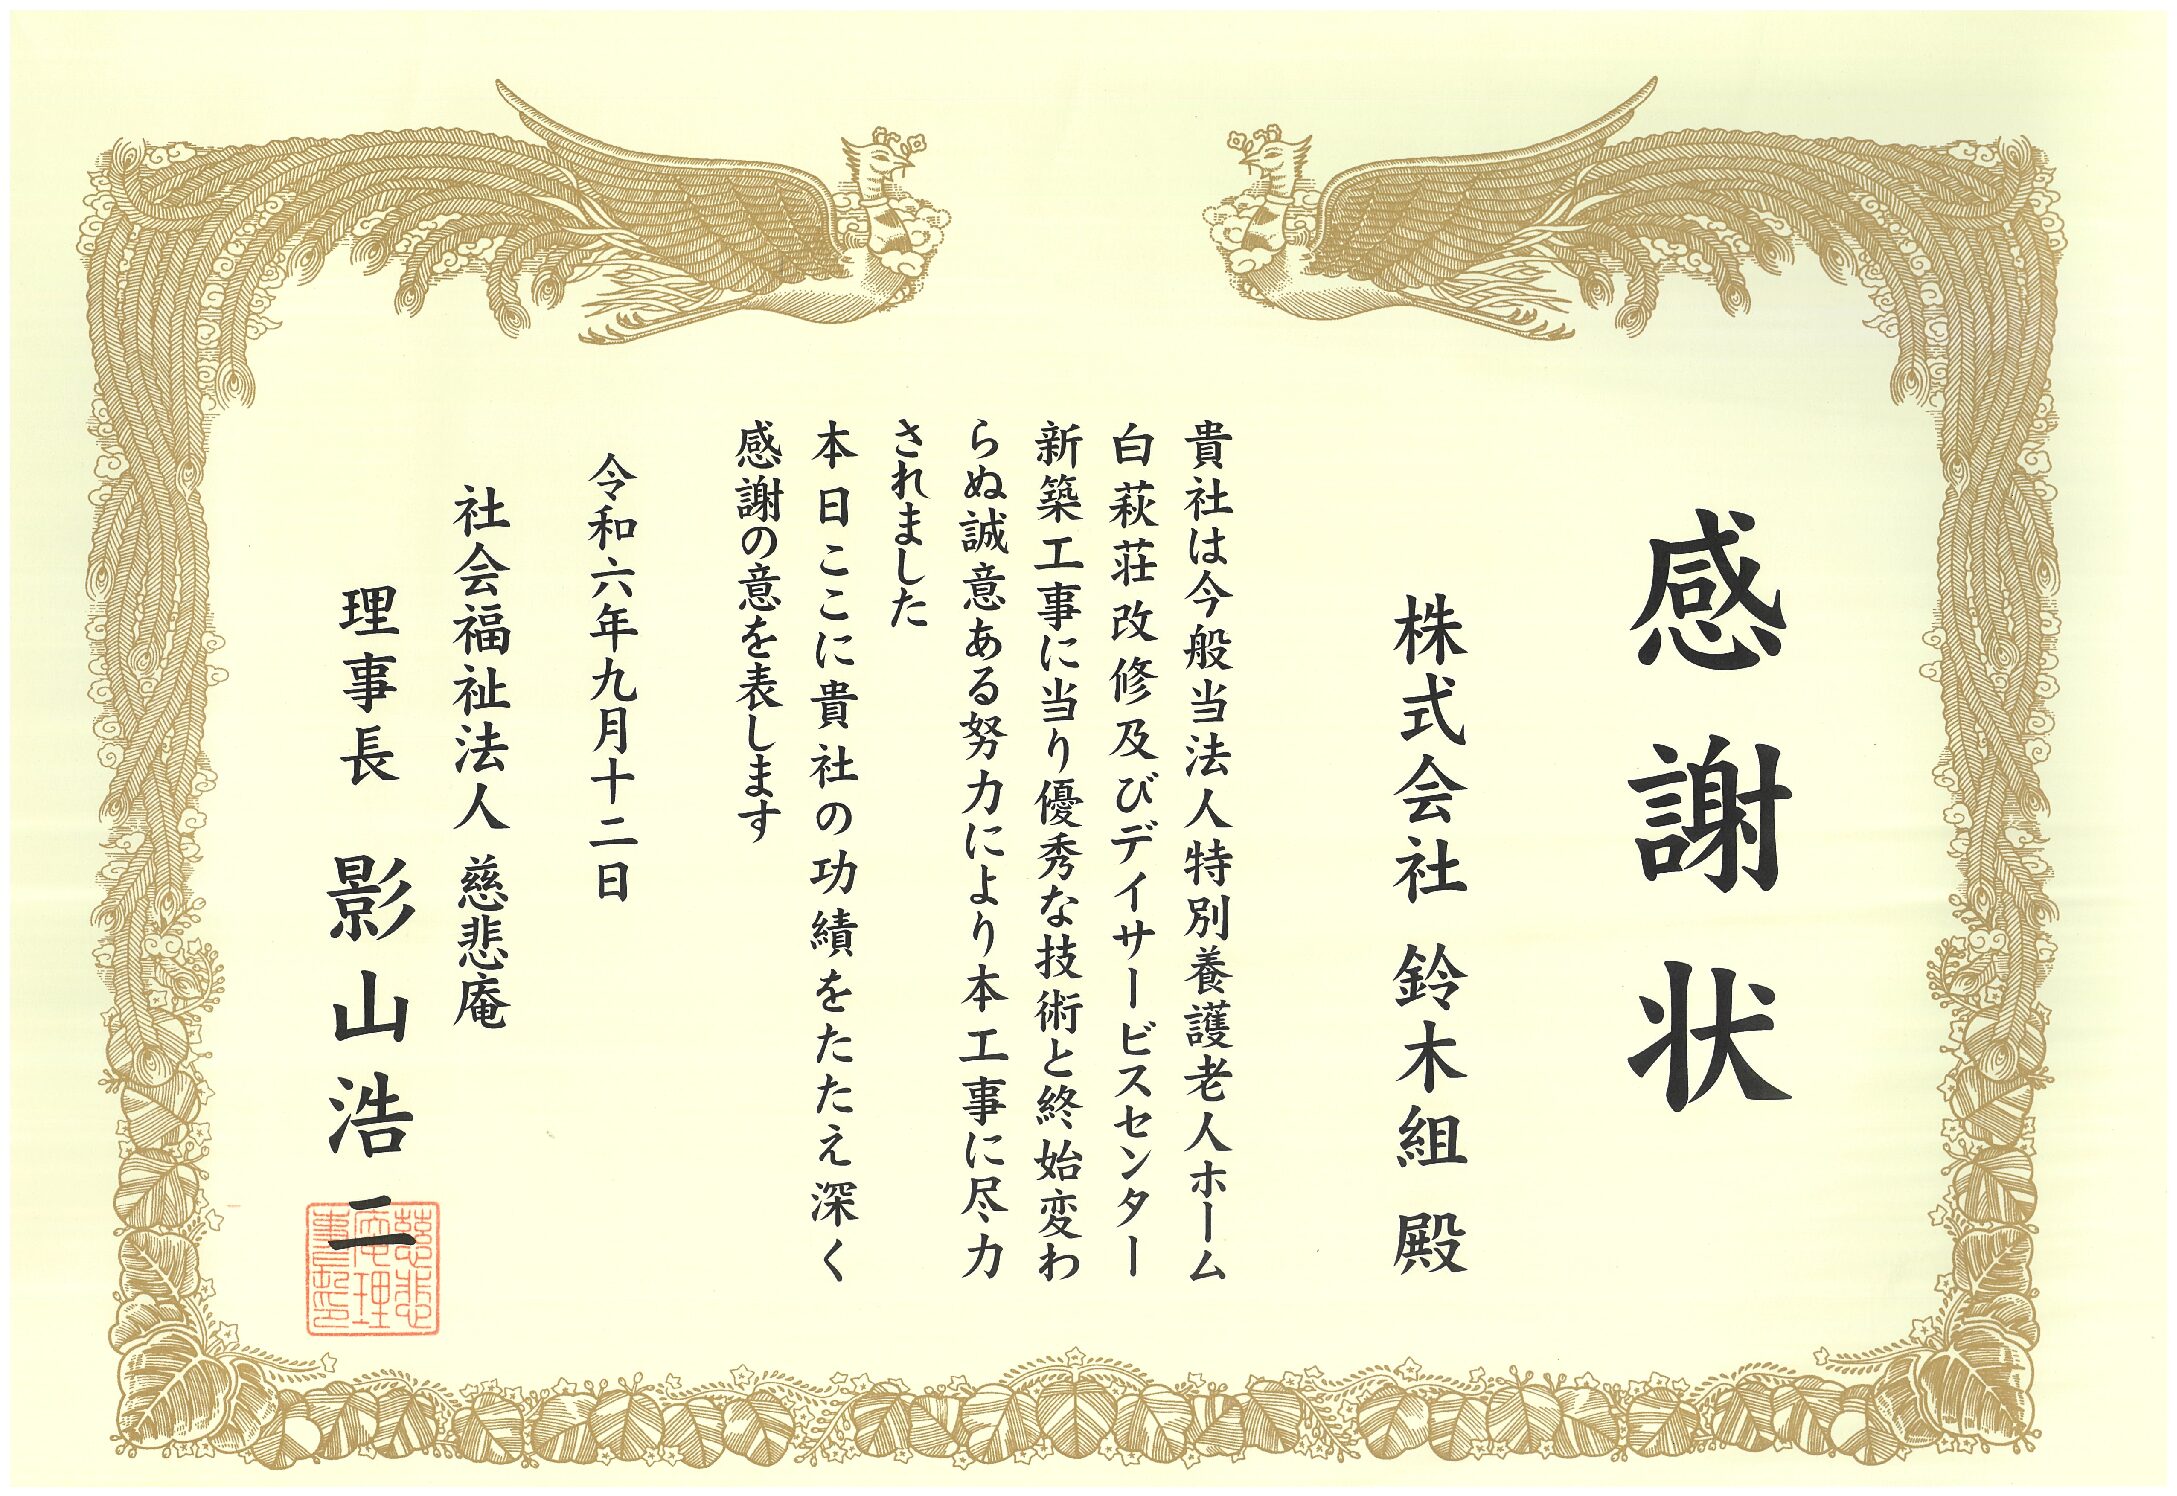 感謝状
株式会社 鈴木組 殿
貴社は今般当法人特別養護老人ホーム
白萩荘改修及びデイサービスセンター
新築工事に当り優秀な技術と終始変わ
らぬ誠意ある努力により本工事に尽力
されました
本日ここに貴社の功績をたたえ深く
感謝の意を表します
令和六年九月十二日
社会福祉法人 慈悲庵
理事長 影山浩二
慈悲
庵理
事長印